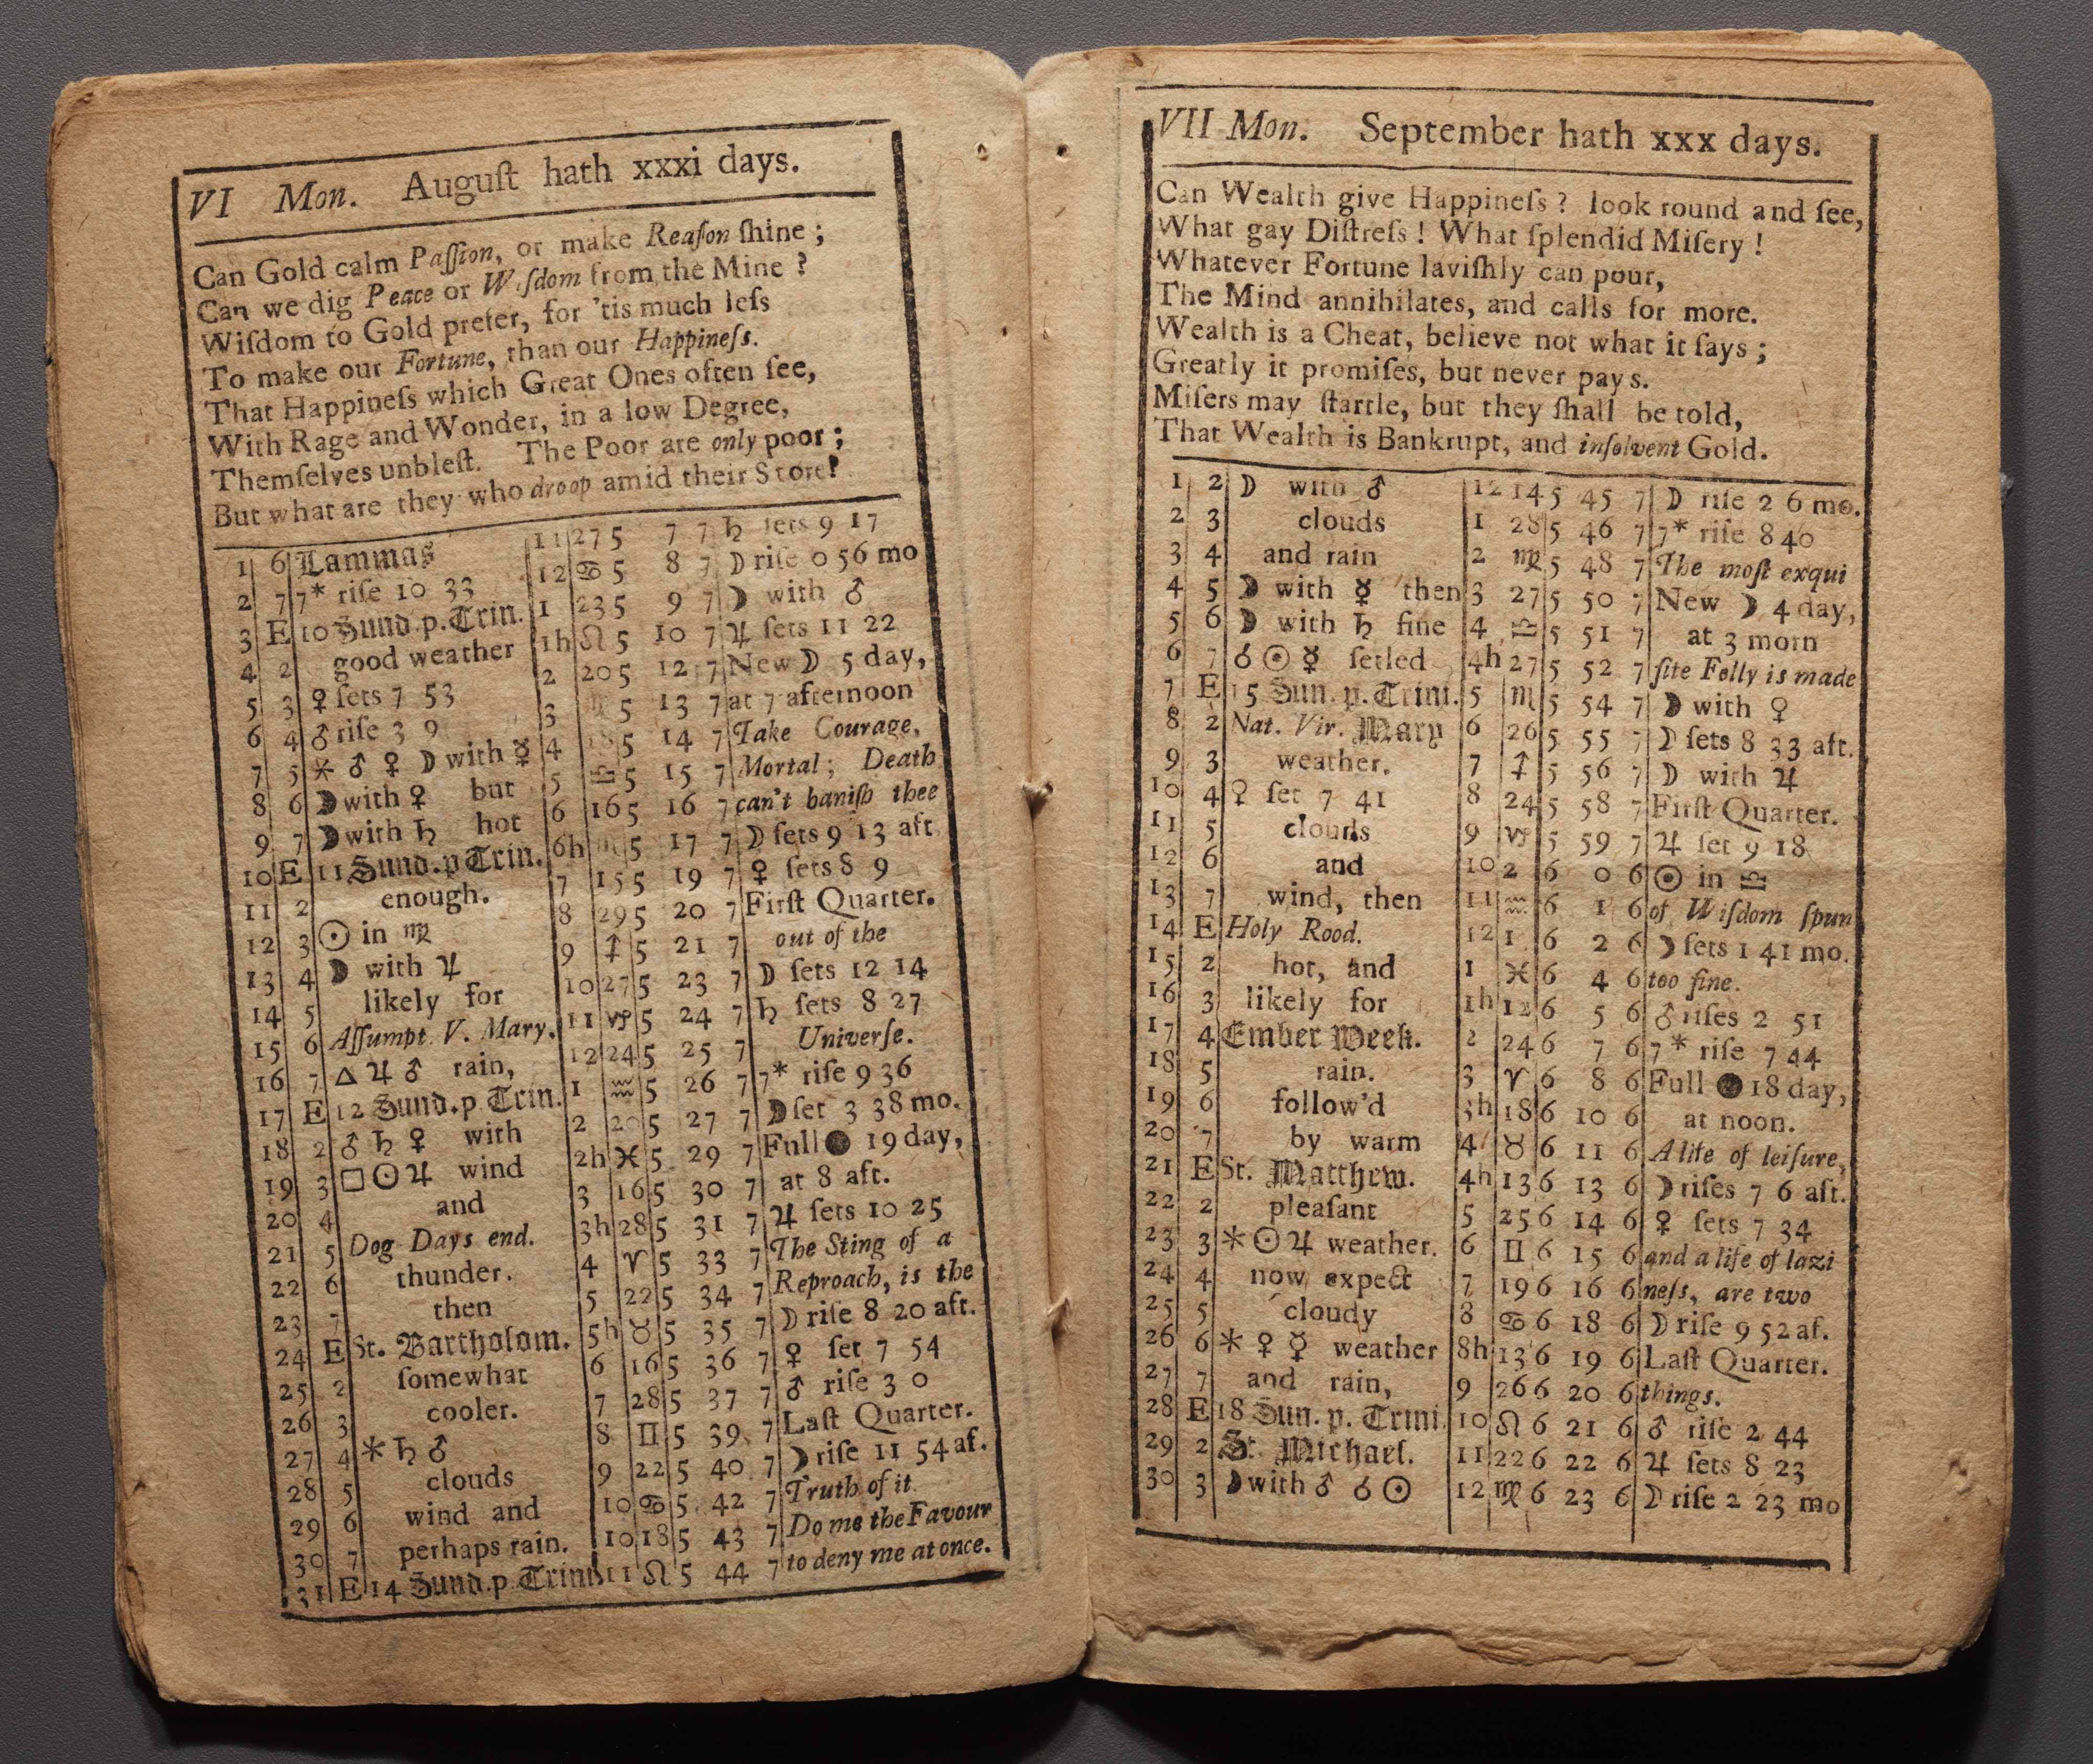 VI Mon. Auguſt hath xxxi days.
Can Gold calm Paſſion, or make Reaſon ſhine ;
Can we dig Peace or Wiſdom from the Mine ?
Wiſdom to Gold prefer, for 'tis much leſs
To make our Fortune, than our Happineſs.
That Happineſs which Great Ones often ſee,
With Rage and Wonder, in a low Degree,
Themſelves unbleſt. The Poor are only poor ;
But what are they who droop amid their Store!
1 6 Lammas 11 27 5 7 7 ♄ ſets 9 17
2 7 7* riſe 10 33 12 ♋ 5 8 7 ☽ riſe 0 56 mo
3 E 10 Sund.p.Trin. 1 23 5 9 7 ☽ with ♂
4 2 good weather 1h ♌ 5 10 7 ♃ ſets 11 22
5 3 ♀ ſets 7 53 2 20 5 12 7 New ☽ 5 day,
6 4 ♂ riſe 3 9 3 ♍ 5 13 7 at 7 afternoon
7 5 ⚹ ♂ ♀ ☽ with ☿ 4 18 5 14 7 Take Courage,
8 6 ☽ with ♀ but 5 ♎ 5 15 7 Mortal; Death
9 7 ☽ with ♄ hot 6 16 5 16 7 can't baniſh thee
10 E 11 Sund.p Trin. 6h ♏ 5 17 7 ☽ ſets 9 13 aft
11 2 enough. 7 15 5 19 7 ♀ ſets 8 9
12 3 ☉ in ♍ 8 29 5 20 7 Firſt Quarter.
13 4 ☽ with ♃ 9 ♐ 5 21 7 out of the
14 5 likely for 10 27 5 23 7 ☽ ſets 12 14
15 6 Aſſumpt. V. Mary. 11 ♑ 5 24 7 ♄ ſets 8 27
16 7 △ ♃ ♂ rain, 12 24 5 25 7 Univerſe.
17 E 12 Sund.p Trin. 1 ♒ 5 26 7 7* riſe 9 36
18 2 ♂ ♄ ♀ with 2 20 5 27 7 ☽ ſet 3 38 mo.
19 3 □ ☉ ♃ wind 2h ♓ 5 29 7 Full ● 19 day,
20 4 and 3 16 5 30 7 at 8 aft.
21 5 Dog Days end. 3h 28 5 31 7 ♃ ſets 10 25
22 6 thunder. 4 ♈ 5 33 7 The Sting of a
23 7 then 5 22 5 34 7 Reproach, is the
24 E St. Bartholom. 5h ♉ 5 35 7 ☽ riſe 8 20 aft.
25 2 ſomewhat 6 16 5 36 7 ♀ ſet 7 54
26 3 cooler. 7 28 5 37 7 ♂ riſe 3 0
27 4 ⚹ ♄ ♂ 8 ♊ 5 39 7 Laſt Quarter.
28 5 clouds 9 22 5 40 7 ☽ riſe 11 54 af.
29 6 wind and 10 ♋ 5 42 7 Truth of it
30 7 perhaps rain. 10 18 5 43 7 Do me the Favour
31 E 14 Sund.p Trini. 11 ♌ 5 44 7 to deny me at once.
VII Mon. September hath xxx days.
Can Wealth give Happineſs ? look round and ſee,
What gay Diſtreſs ! What ſplendid Miſery !
Whatever Fortune laviſhly can pour,
The Mind annihilates, and calls for more.
Wealth is a Cheat, believe not what it ſays ;
Greatly it promiſes, but never pays.
Miſers may ſtartle, but they ſhall be told,
That Wealth is Bankrupt, and inſolvent Gold.
1 2 ☽ with ♂ 12 14 5 45 7 ☽ riſe 2 6 mo.
2 3 clouds 1 28 5 46 7 7* riſe 8 40
3 4 and rain 2 ♍ 5 48 7 The moſt exqui
4 5 ☽ with ☿ then 3 27 5 50 7 New ☽ 4 day,
5 6 ☽ with ♄ fine 4 ♎ 5 51 7 at 3 morn
6 7 ☌ ☉ ☿ ſetled 4h 27 5 52 7 ſite Folly is made
7 E 15 Sun. p. Trini. 5 ♏ 5 54 7 ☽ with ♀
8 2 Nat. Vir. Mary 6 26 5 55 7 ☽ ſets 8 33 aft.
9 3 weather. 7 ♐ 5 56 7 ☽ with ♃
10 4 ♀ ſet 7 41 8 24 5 58 7 Firſt Quarter.
11 5 clouds 9 ♑ 5 59 7 ♃ ſet 9 18
12 6 and 10 2 6 0 6 ☉ in ♎
13 7 wind, then 11 ♒ 6 1 6 of Wiſdom ſpun
14 E Holy Rood. 12 1 6 2 6 ☽ ſets 1 41 mo.
15 2 hot, and 1 ♓ 6 4 6 too fine.
16 3 likely for 1h 12 6 5 6 ♂ riſes 2 51
17 4 Ember Week. 2 24 6 7 6 7* riſe 7 44
18 5 rain. 3 ♈ 6 8 6 Full ● 18 day,
19 6 follow'd 3h 18 6 10 6 at noon.
20 7 by warm 4 ♉ 6 11 6 A life of leiſure,
21 E St. Matthew. 4h 13 6 13 6 ☽ riſes 7 6 aft.
22 2 pleaſant 5 25 6 14 6 ♀ ſets 7 34
23 3 ⚹ ☉ ♃ weather. 6 ♊ 6 15 6 and a life of lazi
24 4 now expect 7 19 6 16 6 neſs, are two
25 5 cloudy 8 ♋ 6 18 6 ☽ riſe 9 52 af.
26 6 ⚹ ♀ ☿ weather 8h 13 6 19 6 Laſt Quarter.
27 7 and rain, 9 26 6 20 6 things.
28 E 18 Sun. p. Trini. 10 ♌ 6 21 6 ♂ riſe 2 44
29 2 St. Michael. 11 22 6 22 6 ♃ ſets 8 23
30 3 ☽ with ♂ ☌ ☉ 12 ♍ 6 23 6 ☽ riſe 2 23 mo